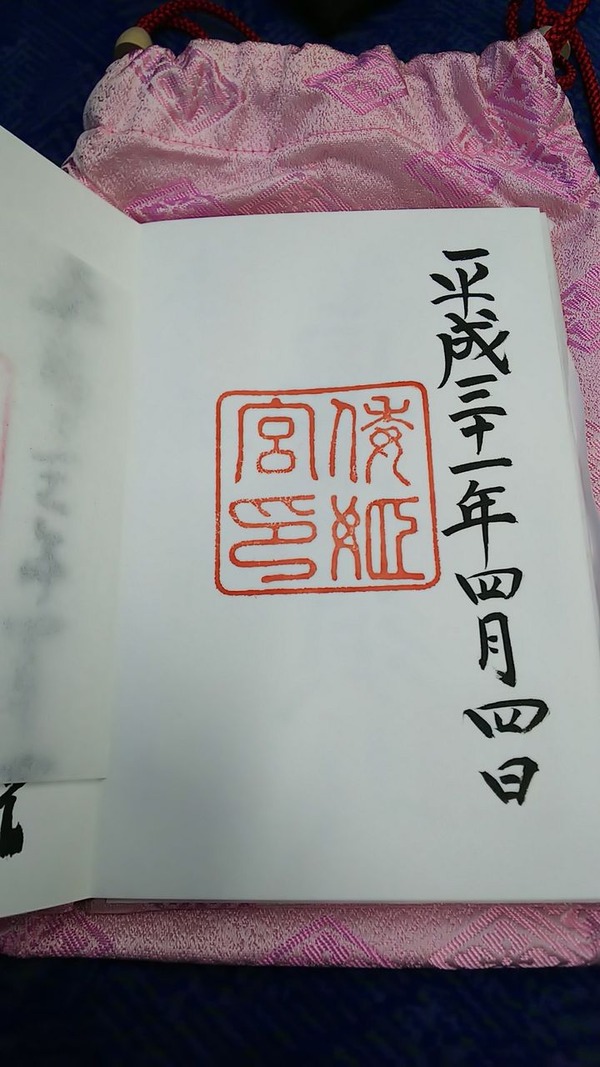 平成三十一年四月四日
倭姫
宮印